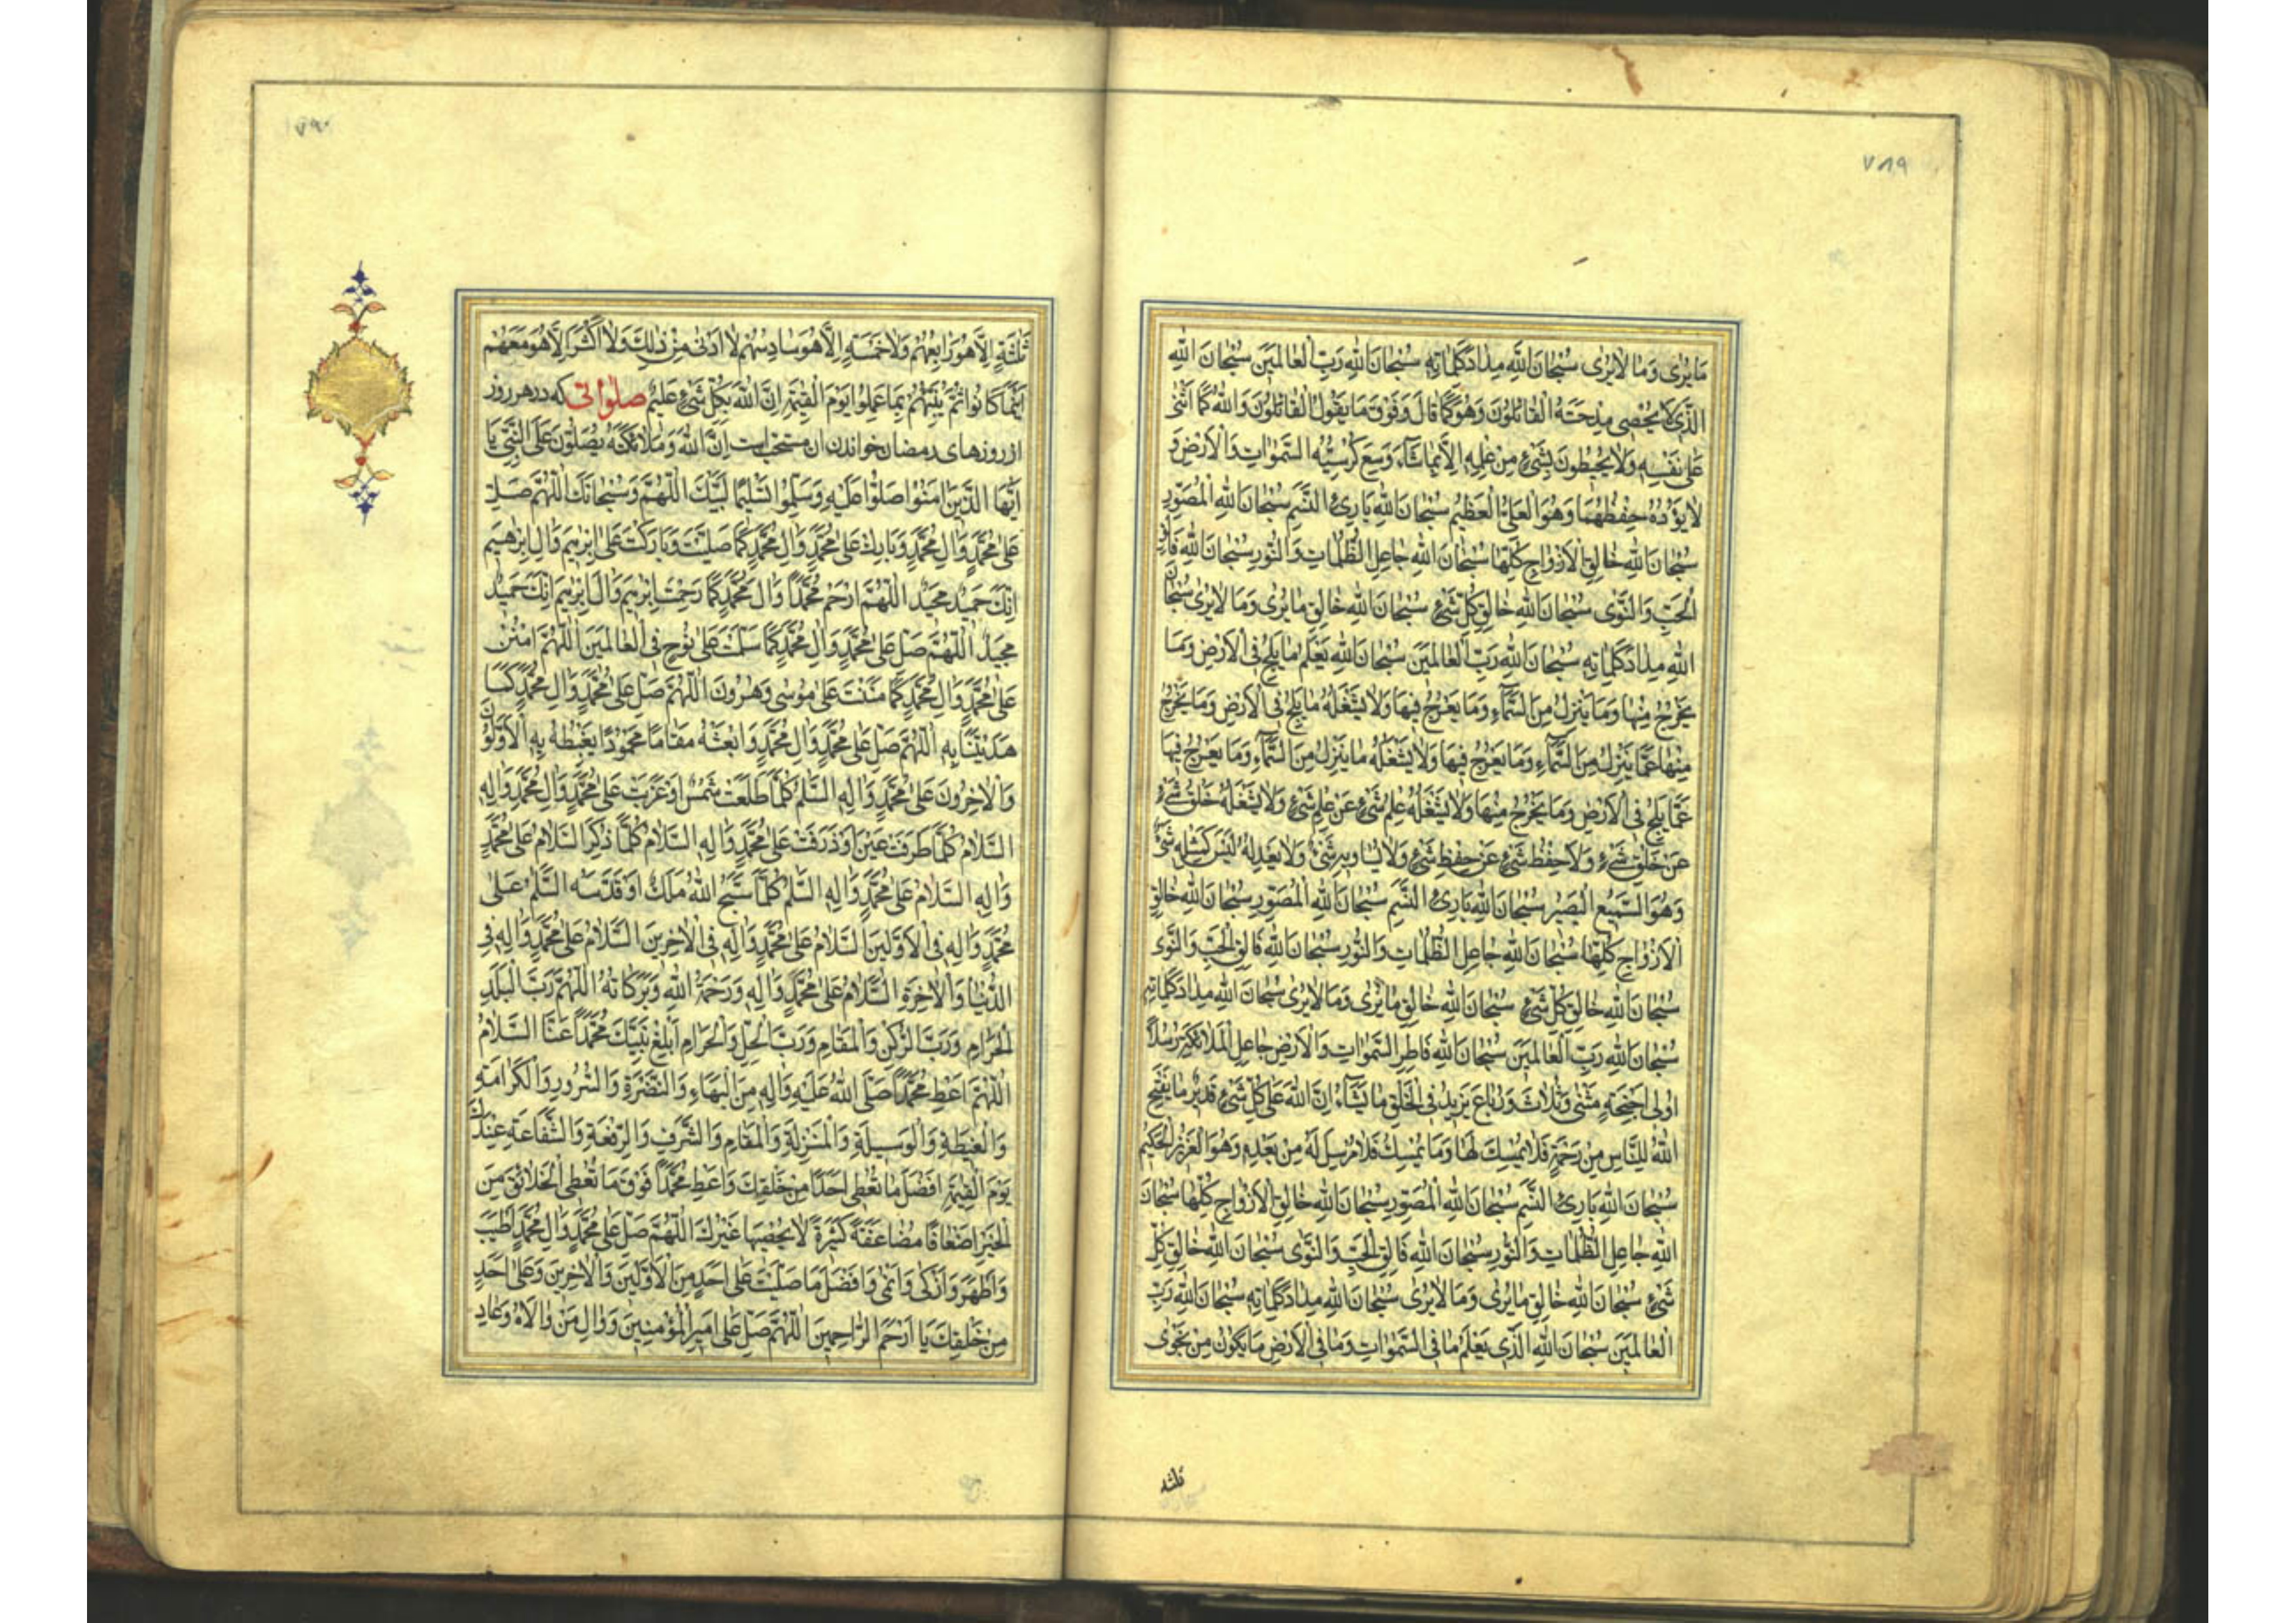 ٧٨٩
مَا يُرٰى وَمَا لَا يُرٰى سُبْحَانَ اللهِ مِدَادَ كَلِمَاتِهِ سُبْحَانَ اللهِ رَبِّ الْعَالَمِينَ سُبْحَانَ اللهِ
الَّذِي لَا يُحْصِي مِدْحَتَهُ الْقَائِلُونَ وَهُوَ كَمَا قَالَ وَفَوْقَ مَا يَقُولُ الْقَائِلُونَ وَاللهُ كَمَا اَثْنٰى
عَلٰى نَفْسِهِ وَلَا يُحِيطُونَ بِشَيْءٍ مِنْ عِلْمِهِ اِلَّا بِمَا شَاءَ وَسِعَ كُرْسِيُّهُ السَّمٰوَاتِ وَالْاَرْضَ وَ
لَا يَؤُدُهُ حِفْظُهُمَا وَهُوَ الْعَلِيُّ الْعَظِيمُ سُبْحَانَ اللهِ بَارِئِ النَّسَمِ سُبْحَانَ اللهِ الْمُصَوِّرِ
سُبْحَانَ اللهِ خَالِقِ الْاَزْوَاجِ كُلِّهَا سُبْحَانَ اللهِ جَاعِلِ الظُّلُمَاتِ وَالنُّورِ سُبْحَانَ اللهِ فَالِقِ
الْحَبِّ وَالنَّوٰى سُبْحَانَ اللهِ خَالِقِ كُلِّ شَيْءٍ سُبْحَانَ اللهِ خَالِقِ مَا يُرٰى وَمَا لَا يُرٰى سُبْحَانَ
اللهِ مِدَادَ كَلِمَاتِهِ سُبْحَانَ اللهِ رَبِّ الْعَالَمِينَ سُبْحَانَ اللهِ يَعْلَمُ مَا يَلِجُ فِي الْاَرْضِ وَمَا
يَخْرُجُ مِنْهَا وَمَا يَنْزِلُ مِنَ السَّمَاءِ وَمَا يَعْرُجُ فِيهَا وَلَا يَشْغَلُهُ مَا يَلِجُ فِي الْاَرْضِ وَمَا يَخْرُجُ
مِنْهَا عَمَّا يَنْزِلُ مِنَ السَّمَاءِ وَمَا يَعْرُجُ فِيهَا وَلَا يَشْغَلُهُ مَا يَنْزِلُ مِنَ السَّمَاءِ وَمَا يَعْرُجُ فِيهَا
عَمَّا يَلِجُ فِي الْاَرْضِ وَمَا يَخْرُجُ مِنْهَا وَلَا يَشْغَلُهُ عِلْمُ شَيْءٍ عَنْ عِلْمِ شَيْءٍ وَلَا يَشْغَلُهُ خَلْقُ شَيْءٍ
عَنْ خَلْقِ شَيْءٍ وَلَا حِفْظُ شَيْءٍ عَنْ حِفْظِ شَيْءٍ وَلَا يُسَاوِيهِ شَيْءٌ وَلَا يَعْدِلُهُ لَيْسَ كَمِثْلِهِ شَيْءٌ
وَهُوَ السَّمِيعُ الْبَصِيرُ سُبْحَانَ اللهِ بَارِئِ النَّسَمِ سُبْحَانَ اللهِ الْمُصَوِّرِ سُبْحَانَ اللهِ خَالِقِ
الْاَزْوَاجِ كُلِّهَا سُبْحَانَ اللهِ جَاعِلِ الظُّلُمَاتِ وَالنُّورِ سُبْحَانَ اللهِ فَالِقِ الْحَبِّ وَالنَّوٰى
سُبْحَانَ اللهِ خَالِقِ كُلِّ شَيْءٍ سُبْحَانَ اللهِ خَالِقِ مَا يُرٰى وَمَا لَا يُرٰى سُبْحَانَ اللهِ مِدَادَ كَلِمَاتِهِ
سُبْحَانَ اللهِ رَبِّ الْعَالَمِينَ سُبْحَانَ اللهِ فَاطِرِ السَّمٰوَاتِ وَالْاَرْضِ جَاعِلِ الْمَلَائِكَةِ رُسُلًا
اُولِي اَجْنِحَةٍ مَثْنٰى وَثُلَاثَ وَرُبَاعَ يَزِيدُ فِي الْخَلْقِ مَا يَشَاءُ اِنَّ اللهَ عَلٰى كُلِّ شَيْءٍ قَدِيرٌ مَا يَفْتَحِ
اللهُ لِلنَّاسِ مِنْ رَحْمَةٍ فَلَا مُمْسِكَ لَهَا وَمَا يُمْسِكْ فَلَا مُرْسِلَ لَهُ مِنْ بَعْدِهِ وَهُوَ الْعَزِيزُ الْحَكِيمُ
سُبْحَانَ اللهِ بَارِئِ النَّسَمِ سُبْحَانَ اللهِ الْمُصَوِّرِ سُبْحَانَ اللهِ خَالِقِ الْاَزْوَاجِ كُلِّهَا سُبْحَانَ
اللهِ جَاعِلِ الظُّلُمَاتِ وَالنُّورِ سُبْحَانَ اللهِ فَالِقِ الْحَبِّ وَالنَّوٰى سُبْحَانَ اللهِ خَالِقِ كُلِّ
شَيْءٍ سُبْحَانَ اللهِ خَالِقِ مَا يُرٰى وَمَا لَا يُرٰى سُبْحَانَ اللهِ مِدَادَ كَلِمَاتِهِ سُبْحَانَ اللهِ رَبِّ
الْعَالَمِينَ سُبْحَانَ اللهِ الَّذِي يَعْلَمُ مَا فِي السَّمٰوَاتِ وَمَا فِي الْاَرْضِ مَا يَكُونُ مِنْ نَجْوٰى
ثلثة
٧٩٠
ثَلٰثَةٍ اِلَّا هُوَ رَابِعُهُمْ وَلَا خَمْسَةٍ اِلَّا هُوَ سَادِسُهُمْ لَا اَدْنٰى مِنْ ذٰلِكَ وَلَا اَكْثَرَ اِلَّا هُوَ مَعَهُمْ
اَيْنَمَا كَانُوا ثُمَّ يُنَبِّئُهُمْ بِمَا عَمِلُوا يَوْمَ الْقِيٰمَةِ اِنَّ اللهَ بِكُلِّ شَيْءٍ عَلِيمٌ صلواتی که در هر روز
از روزهای رمضان خواندن ان مستحب است اِنَّ اللهَ وَمَلَائِكَتَهُ يُصَلُّونَ عَلَى النَّبِيِّ يَا
اَيُّهَا الَّذِينَ اٰمَنُوا صَلُّوا عَلَيْهِ وَسَلِّمُوا تَسْلِيمًا لَبَّيْكَ اللّٰهُمَّ وَسُبْحَانَكَ اللّٰهُمَّ صَلِّ
عَلٰى مُحَمَّدٍ وَاٰلِ مُحَمَّدٍ وَبَارِكْ عَلٰى مُحَمَّدٍ وَاٰلِ مُحَمَّدٍ كَمَا صَلَّيْتَ وَبَارَكْتَ عَلٰى اِبْرٰهِيمَ وَاٰلِ اِبْرٰهِيمَ
اِنَّكَ حَمِيدٌ مَجِيدٌ اللّٰهُمَّ ارْحَمْ مُحَمَّدًا وَاٰلَ مُحَمَّدٍ كَمَا رَحِمْتَ اِبْرٰهِيمَ وَاٰلَ اِبْرٰهِيمَ اِنَّكَ حَمِيدٌ
مَجِيدٌ اللّٰهُمَّ صَلِّ عَلٰى مُحَمَّدٍ وَاٰلِ مُحَمَّدٍ كَمَا سَلَّمْتَ عَلٰى نُوحٍ فِي الْعَالَمِينَ اللّٰهُمَّ امْنُنْ
عَلٰى مُحَمَّدٍ وَاٰلِ مُحَمَّدٍ كَمَا مَنَنْتَ عَلٰى مُوسٰى وَهٰرُونَ اللّٰهُمَّ صَلِّ عَلٰى مُحَمَّدٍ وَاٰلِ مُحَمَّدٍ كَمَا
هَدَيْتَنَا بِهِ اللّٰهُمَّ صَلِّ عَلٰى مُحَمَّدٍ وَاٰلِ مُحَمَّدٍ وَابْعَثْهُ مَقَامًا مَحْمُودًا يَغْبِطُهُ بِهِ الْاَوَّلُونَ
وَالْاٰخِرُونَ عَلٰى مُحَمَّدٍ وَاٰلِهِ السَّلٰمُ كُلَّمَا طَلَعَتْ شَمْسٌ اَوْ غَرَبَتْ عَلٰى مُحَمَّدٍ وَاٰلِ مُحَمَّدٍ وَاٰلِهِ
السَّلَامُ كُلَّمَا طَرَفَتْ عَيْنٌ اَوْ ذَرَفَتْ عَلٰى مُحَمَّدٍ وَاٰلِهِ السَّلَامُ كُلَّمَا ذُكِرَ السَّلَامُ عَلٰى مُحَمَّدٍ
وَاٰلِهِ السَّلَامُ عَلٰى مُحَمَّدٍ وَاٰلِهِ السَّلٰمُ كُلَّمَا سَبَّحَ اللهَ مَلَكٌ اَوْ قَدَّسَهُ السَّلٰمُ عَلٰى
مُحَمَّدٍ وَاٰلِهِ فِي الْاَوَّلِينَ السَّلَامُ عَلٰى مُحَمَّدٍ وَاٰلِهِ فِي الْاٰخِرِينَ السَّلَامُ عَلٰى مُحَمَّدٍ وَاٰلِهِ فِي
الدُّنْيَا وَالْاٰخِرَةِ السَّلَامُ عَلٰى مُحَمَّدٍ وَاٰلِهِ وَرَحْمَةُ اللهِ وَبَرَكَاتُهُ اللّٰهُمَّ رَبَّ الْبَلَدِ
الْحَرَامِ وَرَبَّ الرُّكْنِ وَالْمَقَامِ وَرَبَّ الْحِلِّ وَالْحَرَامِ اَبْلِغْ نَبِيَّكَ مُحَمَّدًا عَنَّا السَّلَامَ
اللّٰهُمَّ اَعْطِ مُحَمَّدًا صَلَّى اللهُ عَلَيْهِ وَاٰلِهِ مِنَ الْبَهَاءِ وَالنَّضْرَةِ وَالسُّرُورِ وَالْكَرَامَةِ
وَالْغِبْطَةِ وَالْوَسِيلَةِ وَالْمَنْزِلَةِ وَالْمَقَامِ وَالشَّرَفِ وَالرِّفْعَةِ وَالشَّفَاعَةِ عِنْدَكَ
يَوْمَ الْقِيٰمَةِ اَفْضَلَ مَا تُعْطِي اَحَدًا مِنْ خَلْقِكَ وَاَعْطِ مُحَمَّدًا فَوْقَ مَا تُعْطِي الْخَلَائِقَ مِنَ
الْخَيْرِ اَضْعَافًا مُضَاعَفَةً كَثِيرَةً لَا يُحْصِيهَا غَيْرُكَ اللّٰهُمَّ صَلِّ عَلٰى مُحَمَّدٍ وَاٰلِ مُحَمَّدٍ اَطْيَبَ
وَاَطْهَرَ وَاَزْكٰى وَاَنْمٰى وَاَفْضَلَ مَا صَلَّيْتَ عَلٰى اَحَدٍ مِنَ الْاَوَّلِينَ وَالْاٰخِرِينَ وَعَلٰى اَحَدٍ
مِنْ خَلْقِكَ يَا اَرْحَمَ الرَّاحِمِينَ اللّٰهُمَّ صَلِّ عَلٰى اَمِيرِ الْمُؤْمِنِينَ وَوَالِ مَنْ وَالَاهُ وَعَادِ